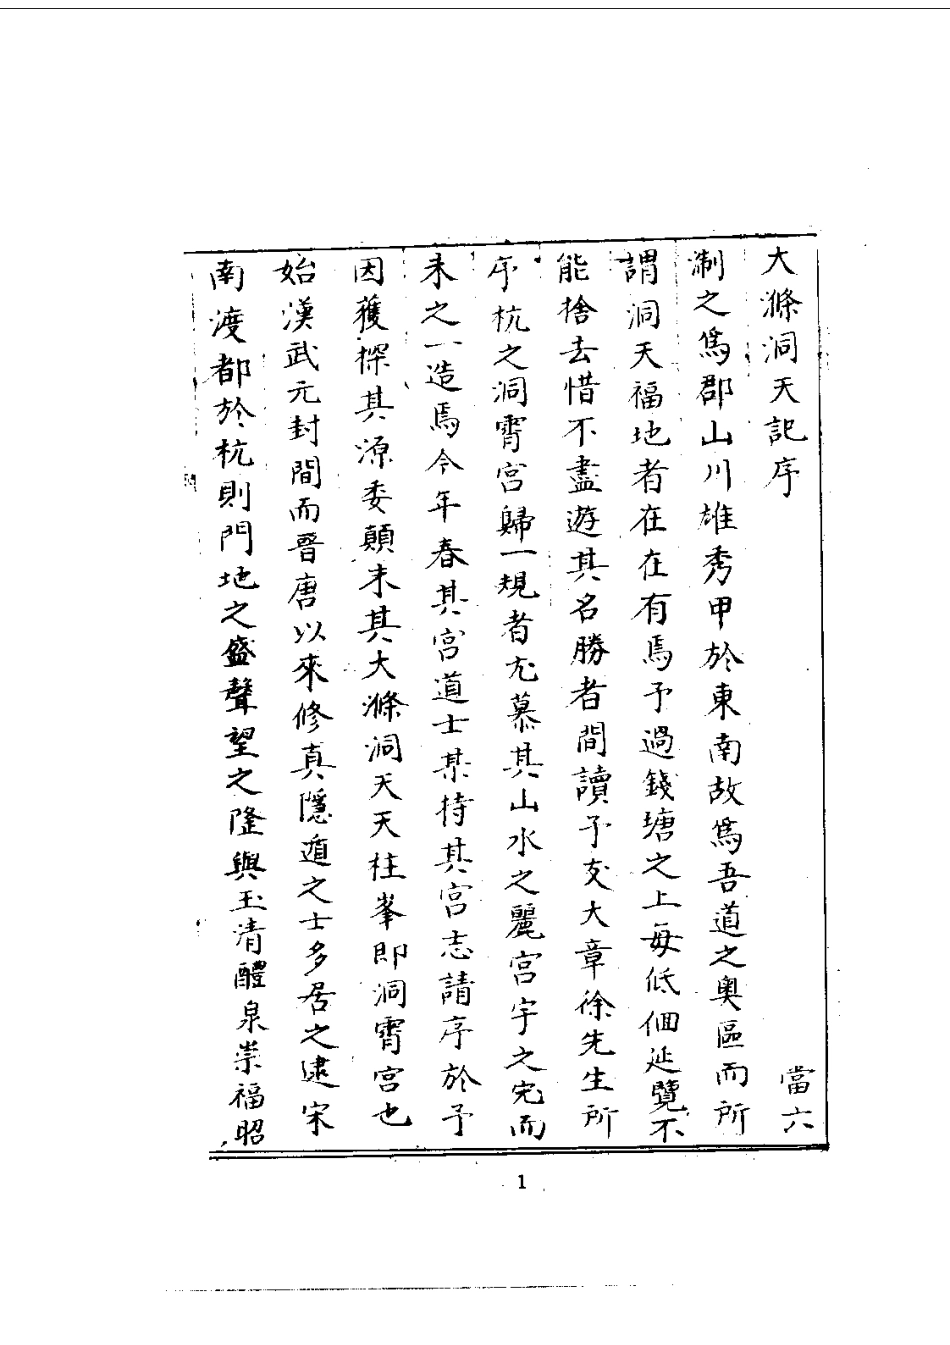 大滌洞天記序 當六
淛之爲郡山川雄秀甲於東南故爲吾道之奧區而所
謂洞天福地者在在有焉予過錢塘之上每低佪延覽不
能捨去惜不盡遊其名勝者間讀予友大章徐先生所
序杭之洞霄宮歸一規者尤慕其山水之麗宮宇之完而
未之一造焉今年春其宮道士某持其宮志請序於予
因獲探其源委顛末其大滌洞天天柱峯即洞霄宮也
始漢武元封間而晉唐以來修真隱遁之士多居之逮宋
南渡都於杭則門地之盛聲望之隆與玉清醴泉崇福昭
1